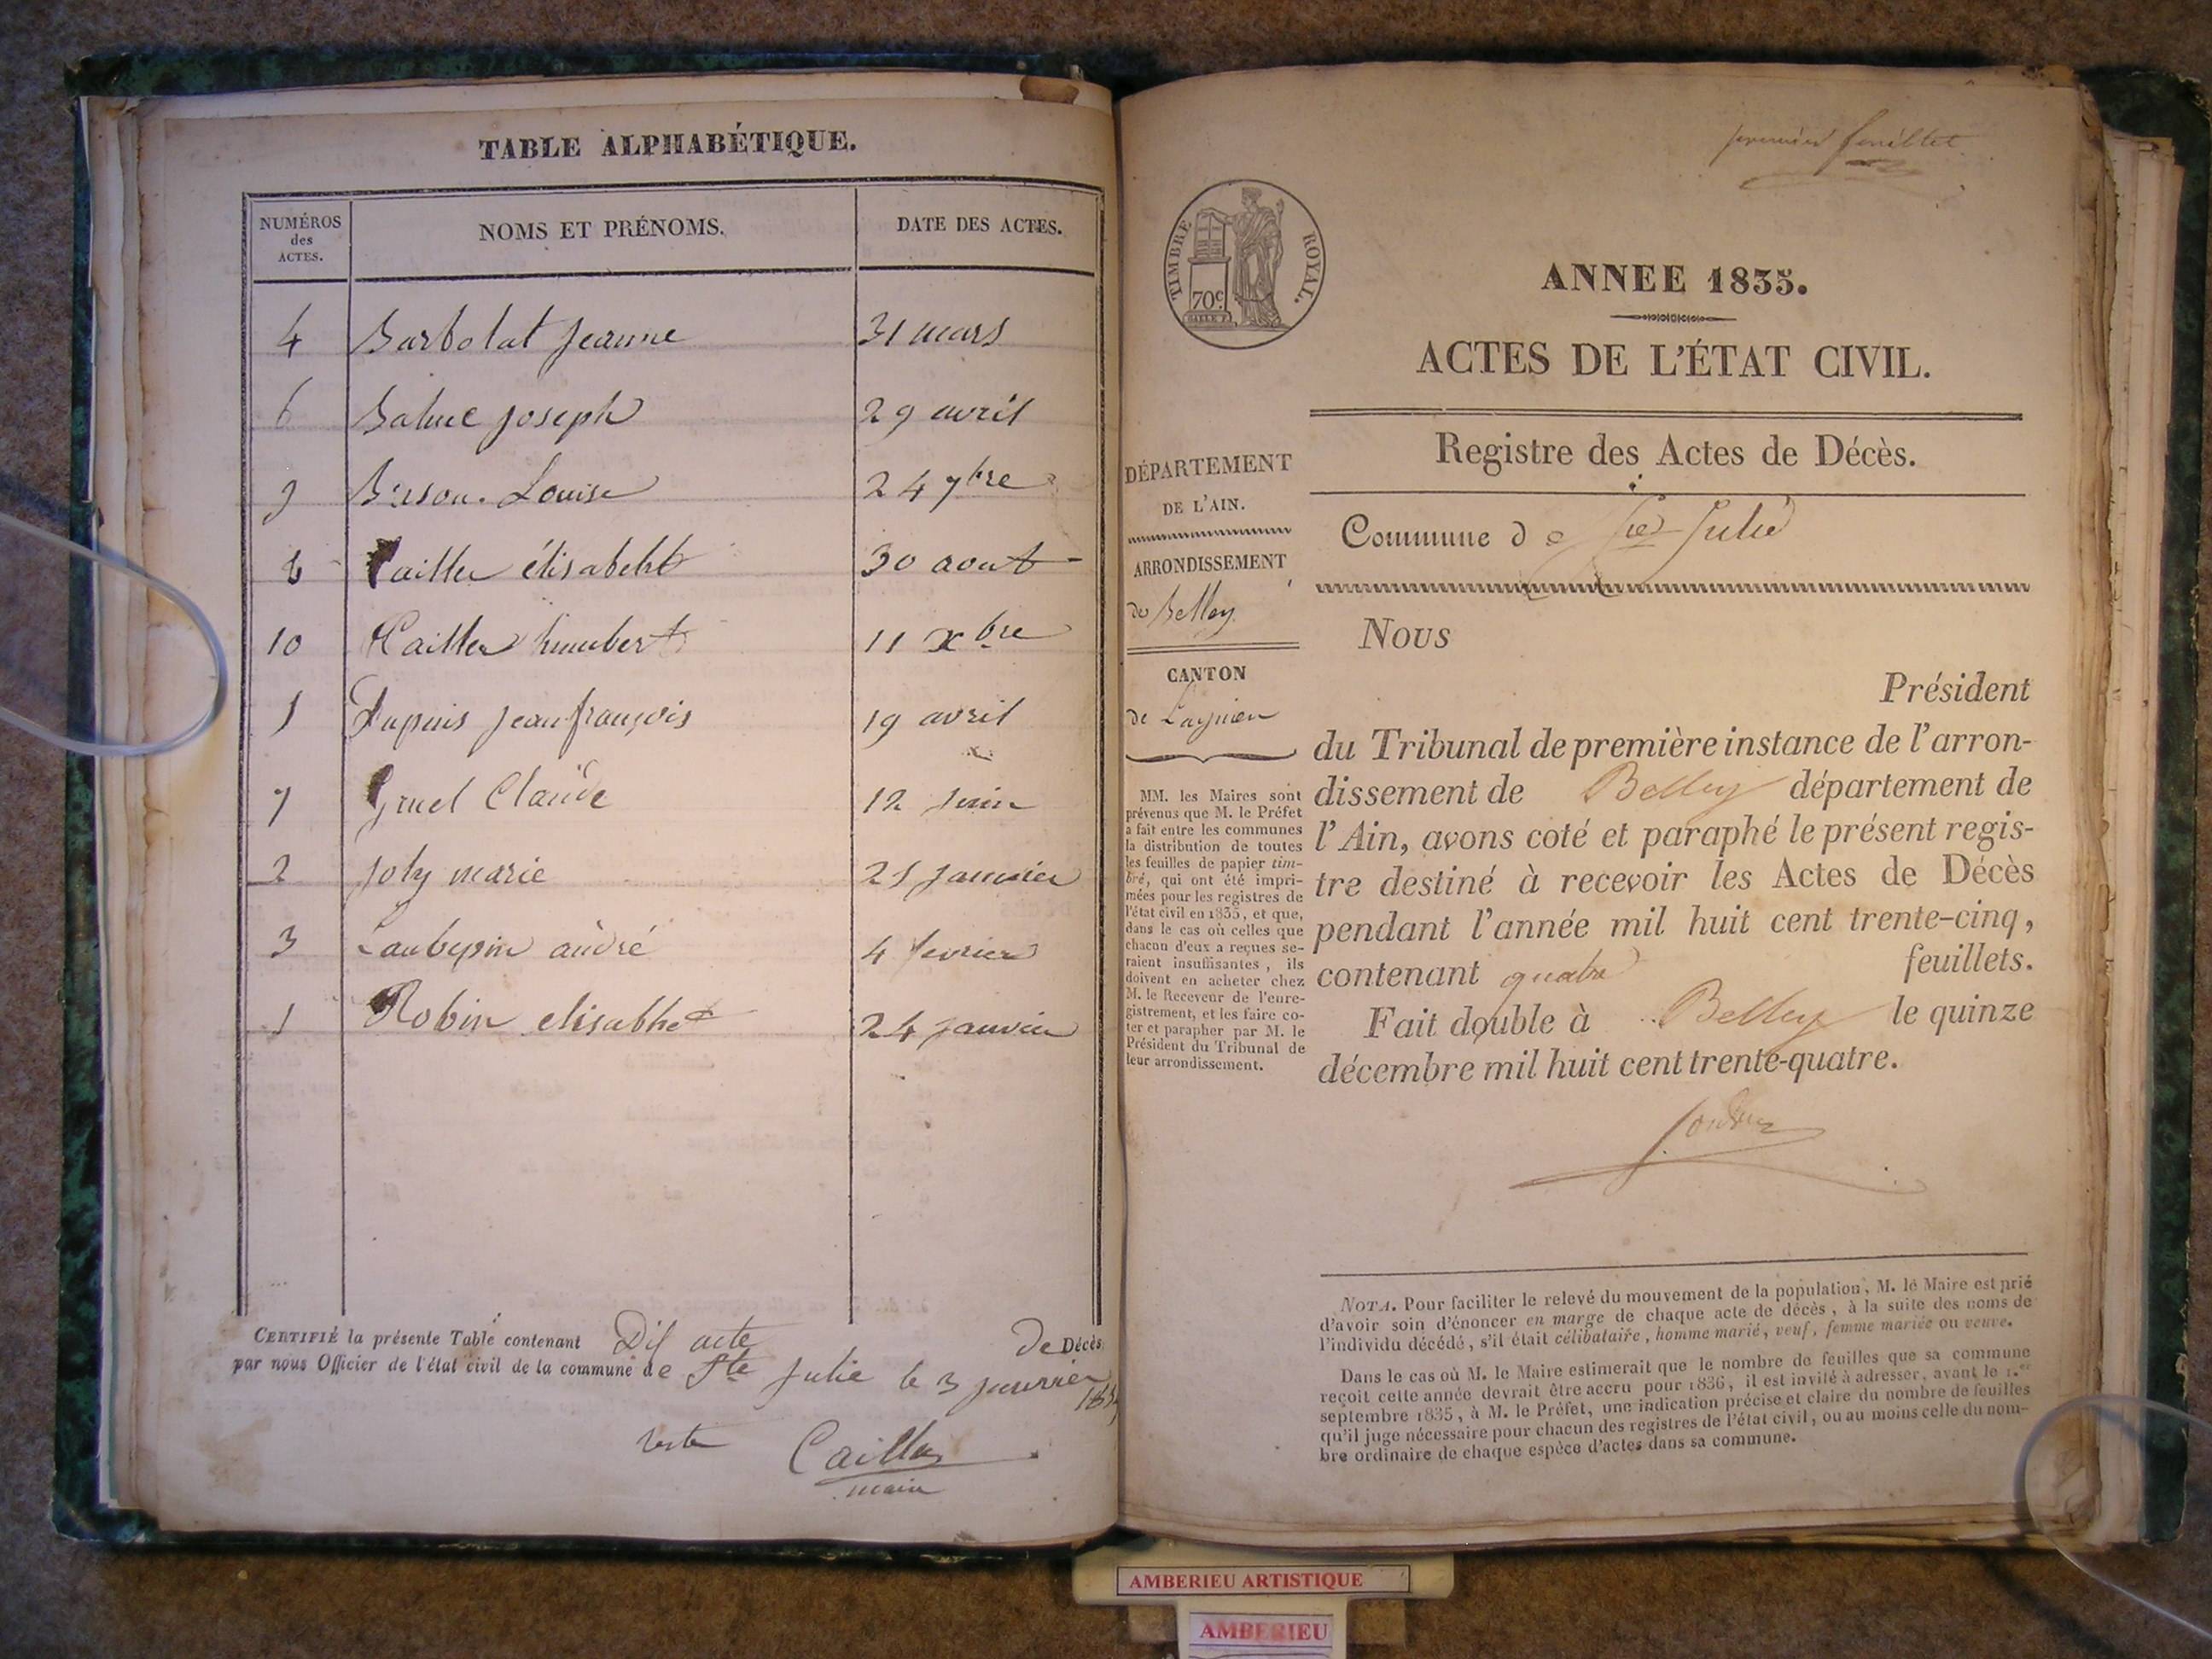 TABLE ALPHABÉTIQUE.
NUMÉROS des ACTES. NOMS ET PRÉNOMS. DATE DES ACTES.
4 Barbolat Jeanne 31 mars
6 Baluc Joseph 29 avril
9 Louise 24 7bre
8 Cailler élisabeht 30 aout
10 Cailler humbert 11 xbre
Dupuis Jean françois 19 avril
7 Gruel Claude 12 Juin
2 Joly marie 21 Janvier
3 Laubepin andré 4 fevrier
1 Robin elisabhet 24 janvier
CERTIFIÉ la présente Table contenant Dix acte de Décès
par nous Officier de l'état civil de la commune de Ste Julie le 3 janvier
Cailler
maire
premier feuillet
TIMBRE ROYAL.
70c
ANNEE 1835.
ACTES DE L'ÉTAT CIVIL.
Registre des Actes de Décès.
Commune de Ste Julie
DÉPARTEMENT
DE L'AIN.
ARRONDISSEMENT
de Belley
CANTON
de Lagnieu
MM. les Maires sont
prévenus que M. le Préfet
a fait entre les communes
la distribution de toutes
les feuilles de papier tim-
bré, qui ont été impri-
mées pour les registres de
l'état civil en 1835, et que,
dans le cas où celles que
chacun d'eux a reçues se-
raient insuffisantes, ils
doivent en acheter chez
M. le Receveur de l'enre-
gistrement, et les faire co-
ter et parapher par M. le
Président du Tribunal de
leur arrondissement.
Nous
Président
du Tribunal de première instance de l'arron-
dissement de Belley département de
l'Ain, avons coté et paraphé le présent regis-
tre destiné à recevoir les Actes de Décès
pendant l'année mil huit cent trente-cinq,
contenant quatre feuillets.
Fait double à Belley le quinze
décembre mil huit cent trente-quatre.
NOTA. Pour faciliter le relevé du mouvement de la population, M. le Maire est prié
d'avoir soin d'énoncer en marge de chaque acte de décès, à la suite des noms de
l'individu décédé, s'il était célibataire, homme marié, veuf, femme mariée ou veuve.
Dans le cas où M. le Maire estimerait que le nombre de feuilles que sa commune
reçoit cette année devrait être accru pour 1836, il est invité à adresser, avant le 1.er
septembre 1835, à M. le Préfet, une indication précise et claire du nombre de feuilles
qu'il juge nécessaire pour chacun des registres de l'état civil, ou au moins celle du nom-
bre ordinaire de chaque espèce d'actes dans sa commune.
AMBERIEU ARTISTIQUE
AMBERIEU